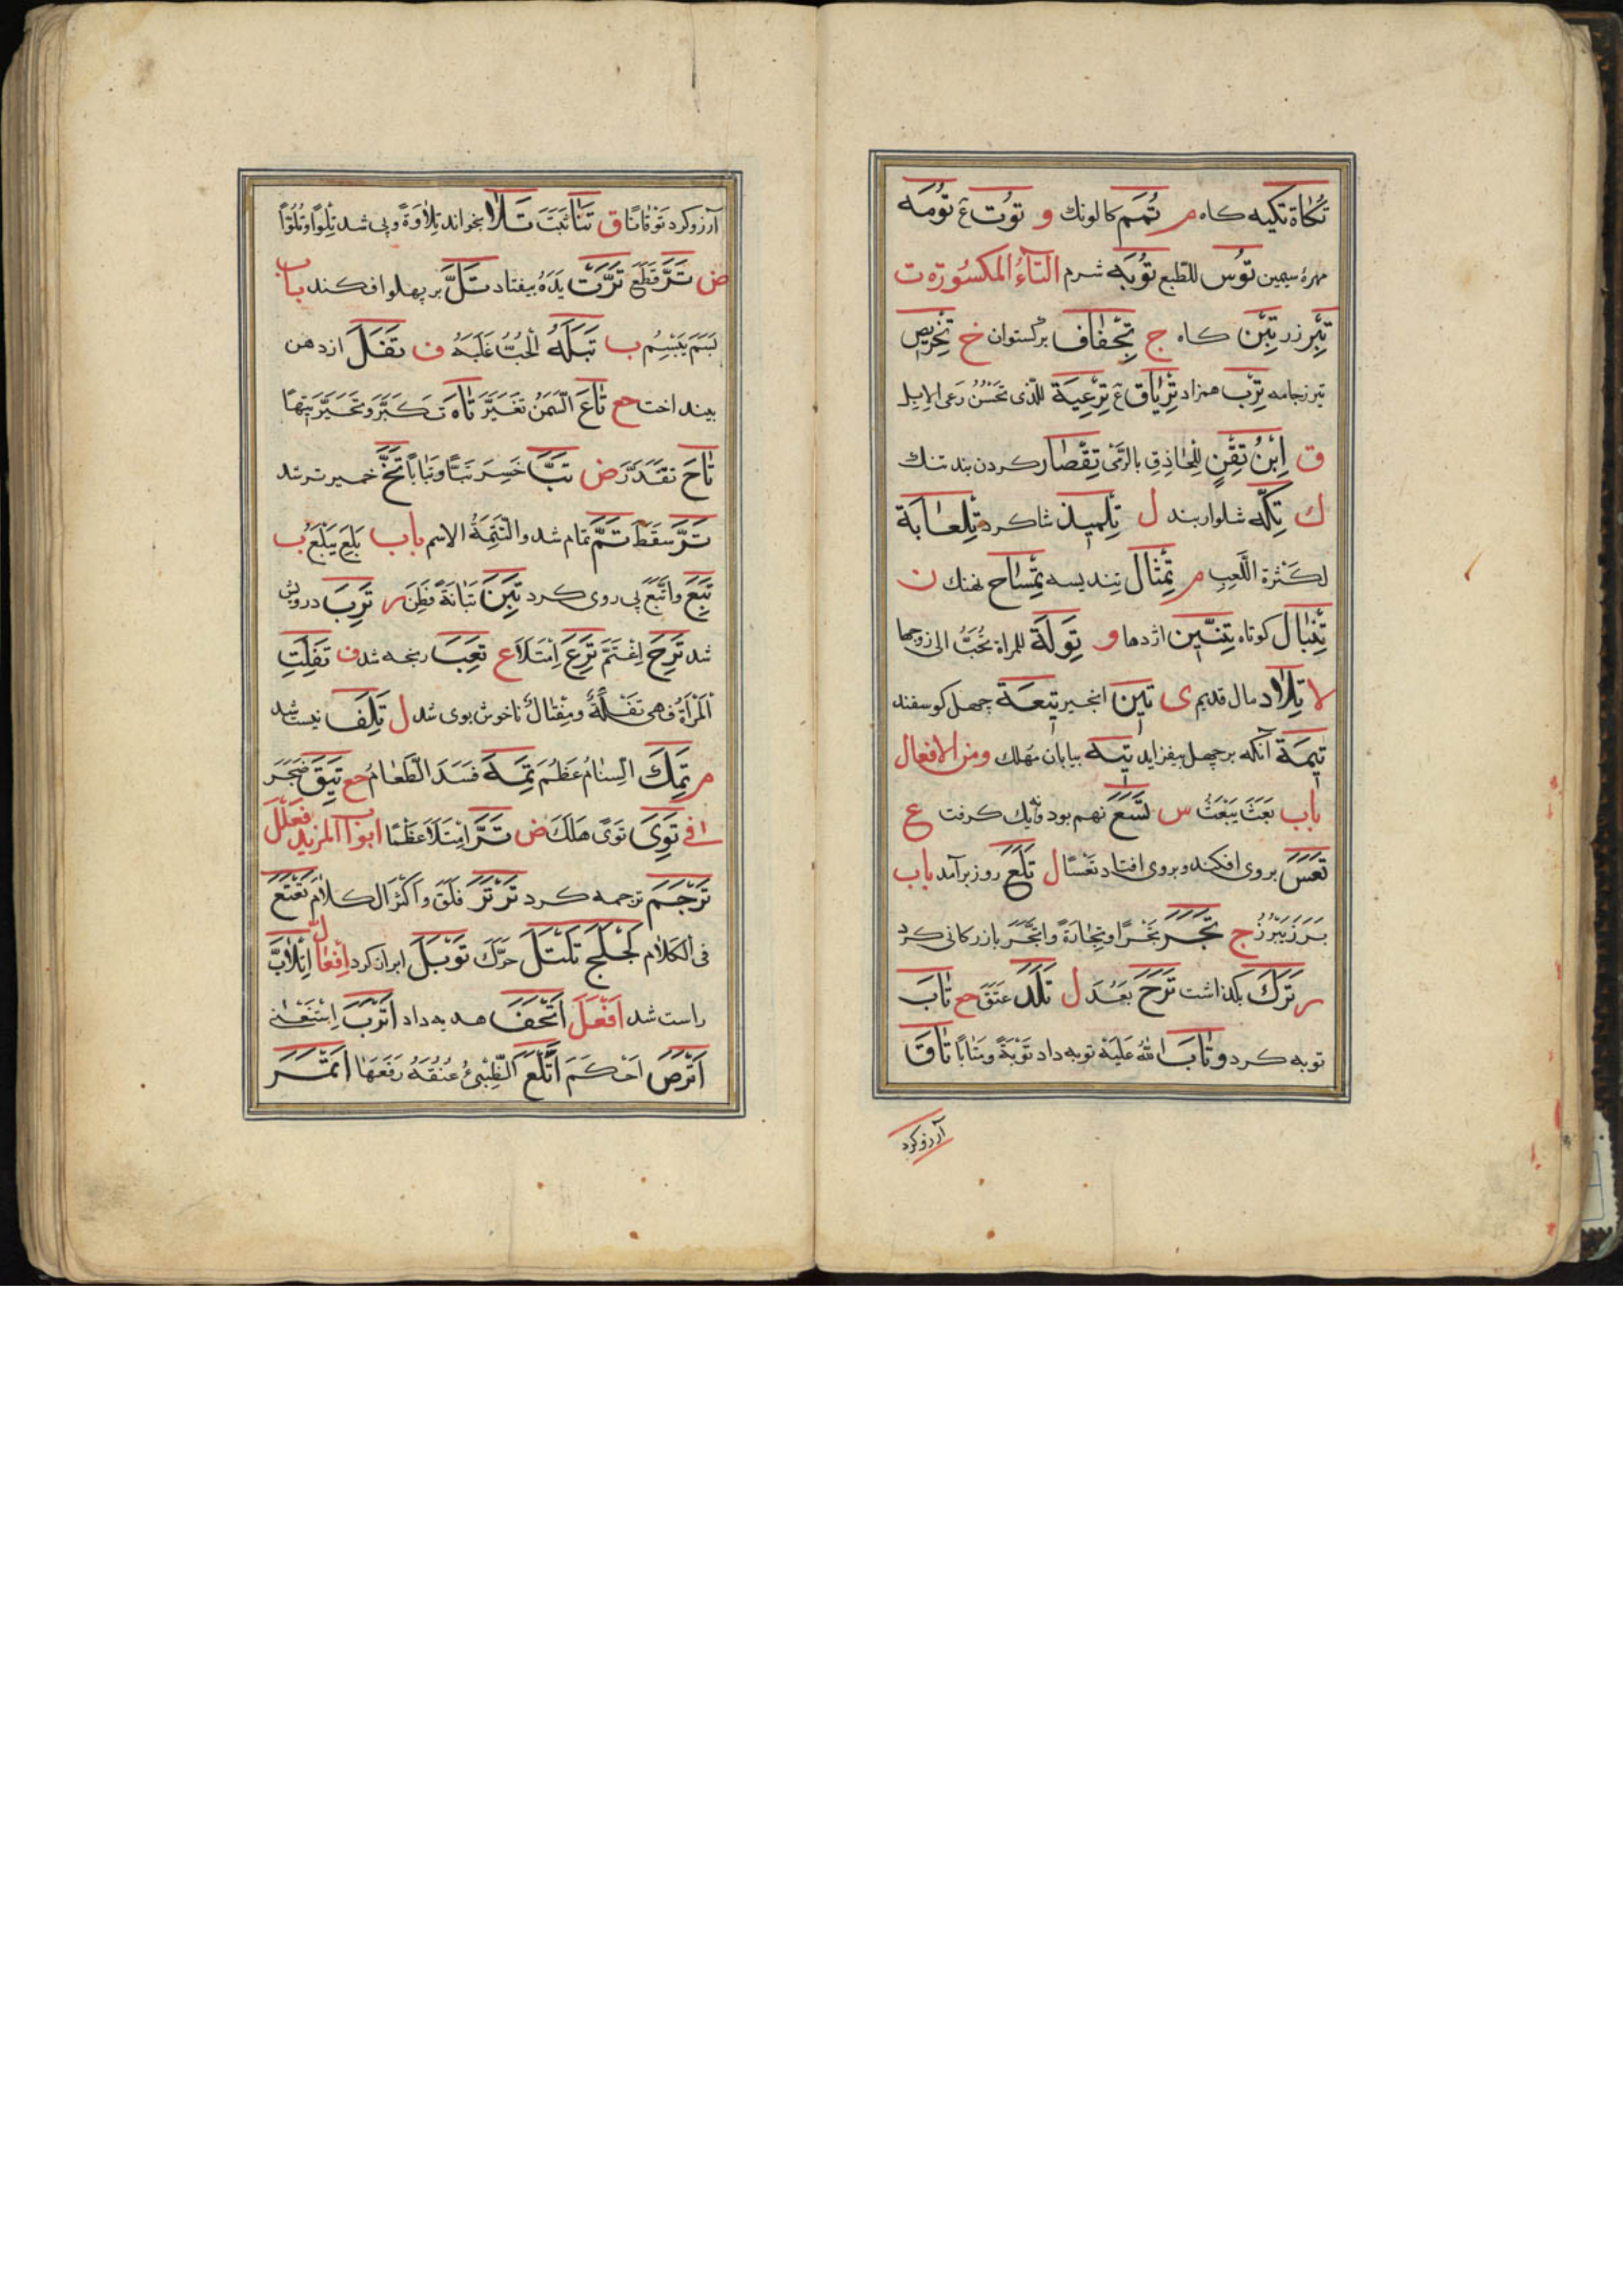 تُكَاَة تكيه كاه م تُمَم كالونك و تُوت ع تُومَه
مهرۀ سيمين تُوس للطبع تُوبَه شرم التّاءُ المكسُورَة ت
تِبْر زر تِبْن كاه ج تِجْفَاف برگستوان خ تِخْرِيص
تيرز جامه تِرْب همزاد تِرْيَاق ع تِرْعِيَة للّذى تَحْسُنُ رَعى الابِل
ق اِبْنُ تِقْنٍ لِلْحَاذِقِ بالرَّمْىِ تِقْصَار كردن بند تنك
ك تِكّه شلوار بند ل تِلْمِيذ شاكرد تِلْعَابَة
لكَثْرَة اللَّعِبِ م تِمْثَال تنديسه تِمْسَاح نهنك ن
تِنْبَال كوتاه تِنِّين اژدها و تِوَلَة للمراة تُحَبُّ الى زوجها
لا تِلَاد مال قديم ى تِين انجير تِيعَة چهل كوسفند
تِيمَة آنكه بر چهل بيفزايد تِيه بيابان مُهلك ومن الافعال
باب بَعَثَ يَبْعَثُ س تَسَعَ نهم بود ونه يك كرفت ع
تَعَسَ بروى افكند وبروى افتاد تَعْسًا ل تَلَعَ روز برآمد باب
بَرَزَ يَبْرُزُ ج تَجَرَ تَجْرًا وتِجَارَةً واتَّجَرَ بازركانى كرد
ر تَرَكَ بكذاشت تَرَحَ بَعُدَ ل تَلَدَ عَتَقَ ح تَابَ
توبه كرد وتَابَ اللهُ عَلَيْهِ توبه داد تَوْبَةً ومَتَابًا تَاقَ
آرزو كرد
آرزو كرد تَوْقَانًا ق تَنَا ثَبَتَ تَلَا بخواند تِلَاوَةً وپى شد تِلْوًا وتُلُوًّا
ض تَرَّ قَطَعَ تَرَّتْ يَدُهُ بيفتاد تَلَّ بر پهلو افكند باب
بَسَمَ يَبْسِمُ ب تَبَلَهُ الْحُبُّ غَلَبَهُ ف تَفَلَ از دهن
بينداخت حع تَاعَ السَّمْنُ تَغَيَّرَ تَاهَ تَكَبَّرَ وتَحَيَّرَ تِيهًا
تَاحَ تَقَدَّرَ ض تَبَّ خَسِرَ تَبًّا وتَبَابًا تَخَّ خمير ترشد
تَرَّ سَقَطَ تَمَّ تمام شد والتَّتِمَّةُ الاسم باب بَلِعَ يَبْلَعُ ب
تَبِعَ واتَّبَعَ پى روى كرد تَبِنَ تَبَانَةً فَطِنَ ر تَرِبَ درويش
شد تَرِحَ اِغْتَمَّ تَرِعَ اِمْتَلَأَ ع تَعِبَ رنجه شد ف تَفِلَتِ
الْمَرْأَةُ فهى تَفِلَةٌ ومِتْفَالٌ ناخوش بوى شد ل تَلِفَ نيست شد
م تَمِكَ السِّنَامُ عَظُمَ تَمِهَ فَسَدَ الطَّعَامُ حع تَئِقَ ضَجِرَ
فى تَوِىَ تَوًى هَلَكَ ض تَرَّ اِمْتَلَأَ عَظْمًا ابواب المزيد فَعْلَلَ
تَرْجَمَ ترجمه كرد تَرْتَرَ قَلَقَ واكثَرَ الكلَامَ تَعْتَعَ
فى الكَلَام لَجْلَجَ تَلْتَلَ حَرَّكَ تَوْبَلَ ابزار كرد اِفْعَالَّ اِتْلَأَبَّ
راست شد اَفْعَلَ اَتْحَفَ هديه داد اَتْرَبَ اِسْتَغْنَى
اَتْرَصَ اَحْكَمَ اَتْلَعَ الظَّبْىُ عُنُقَهُ رَفَعَهَا اَتْمَرَ